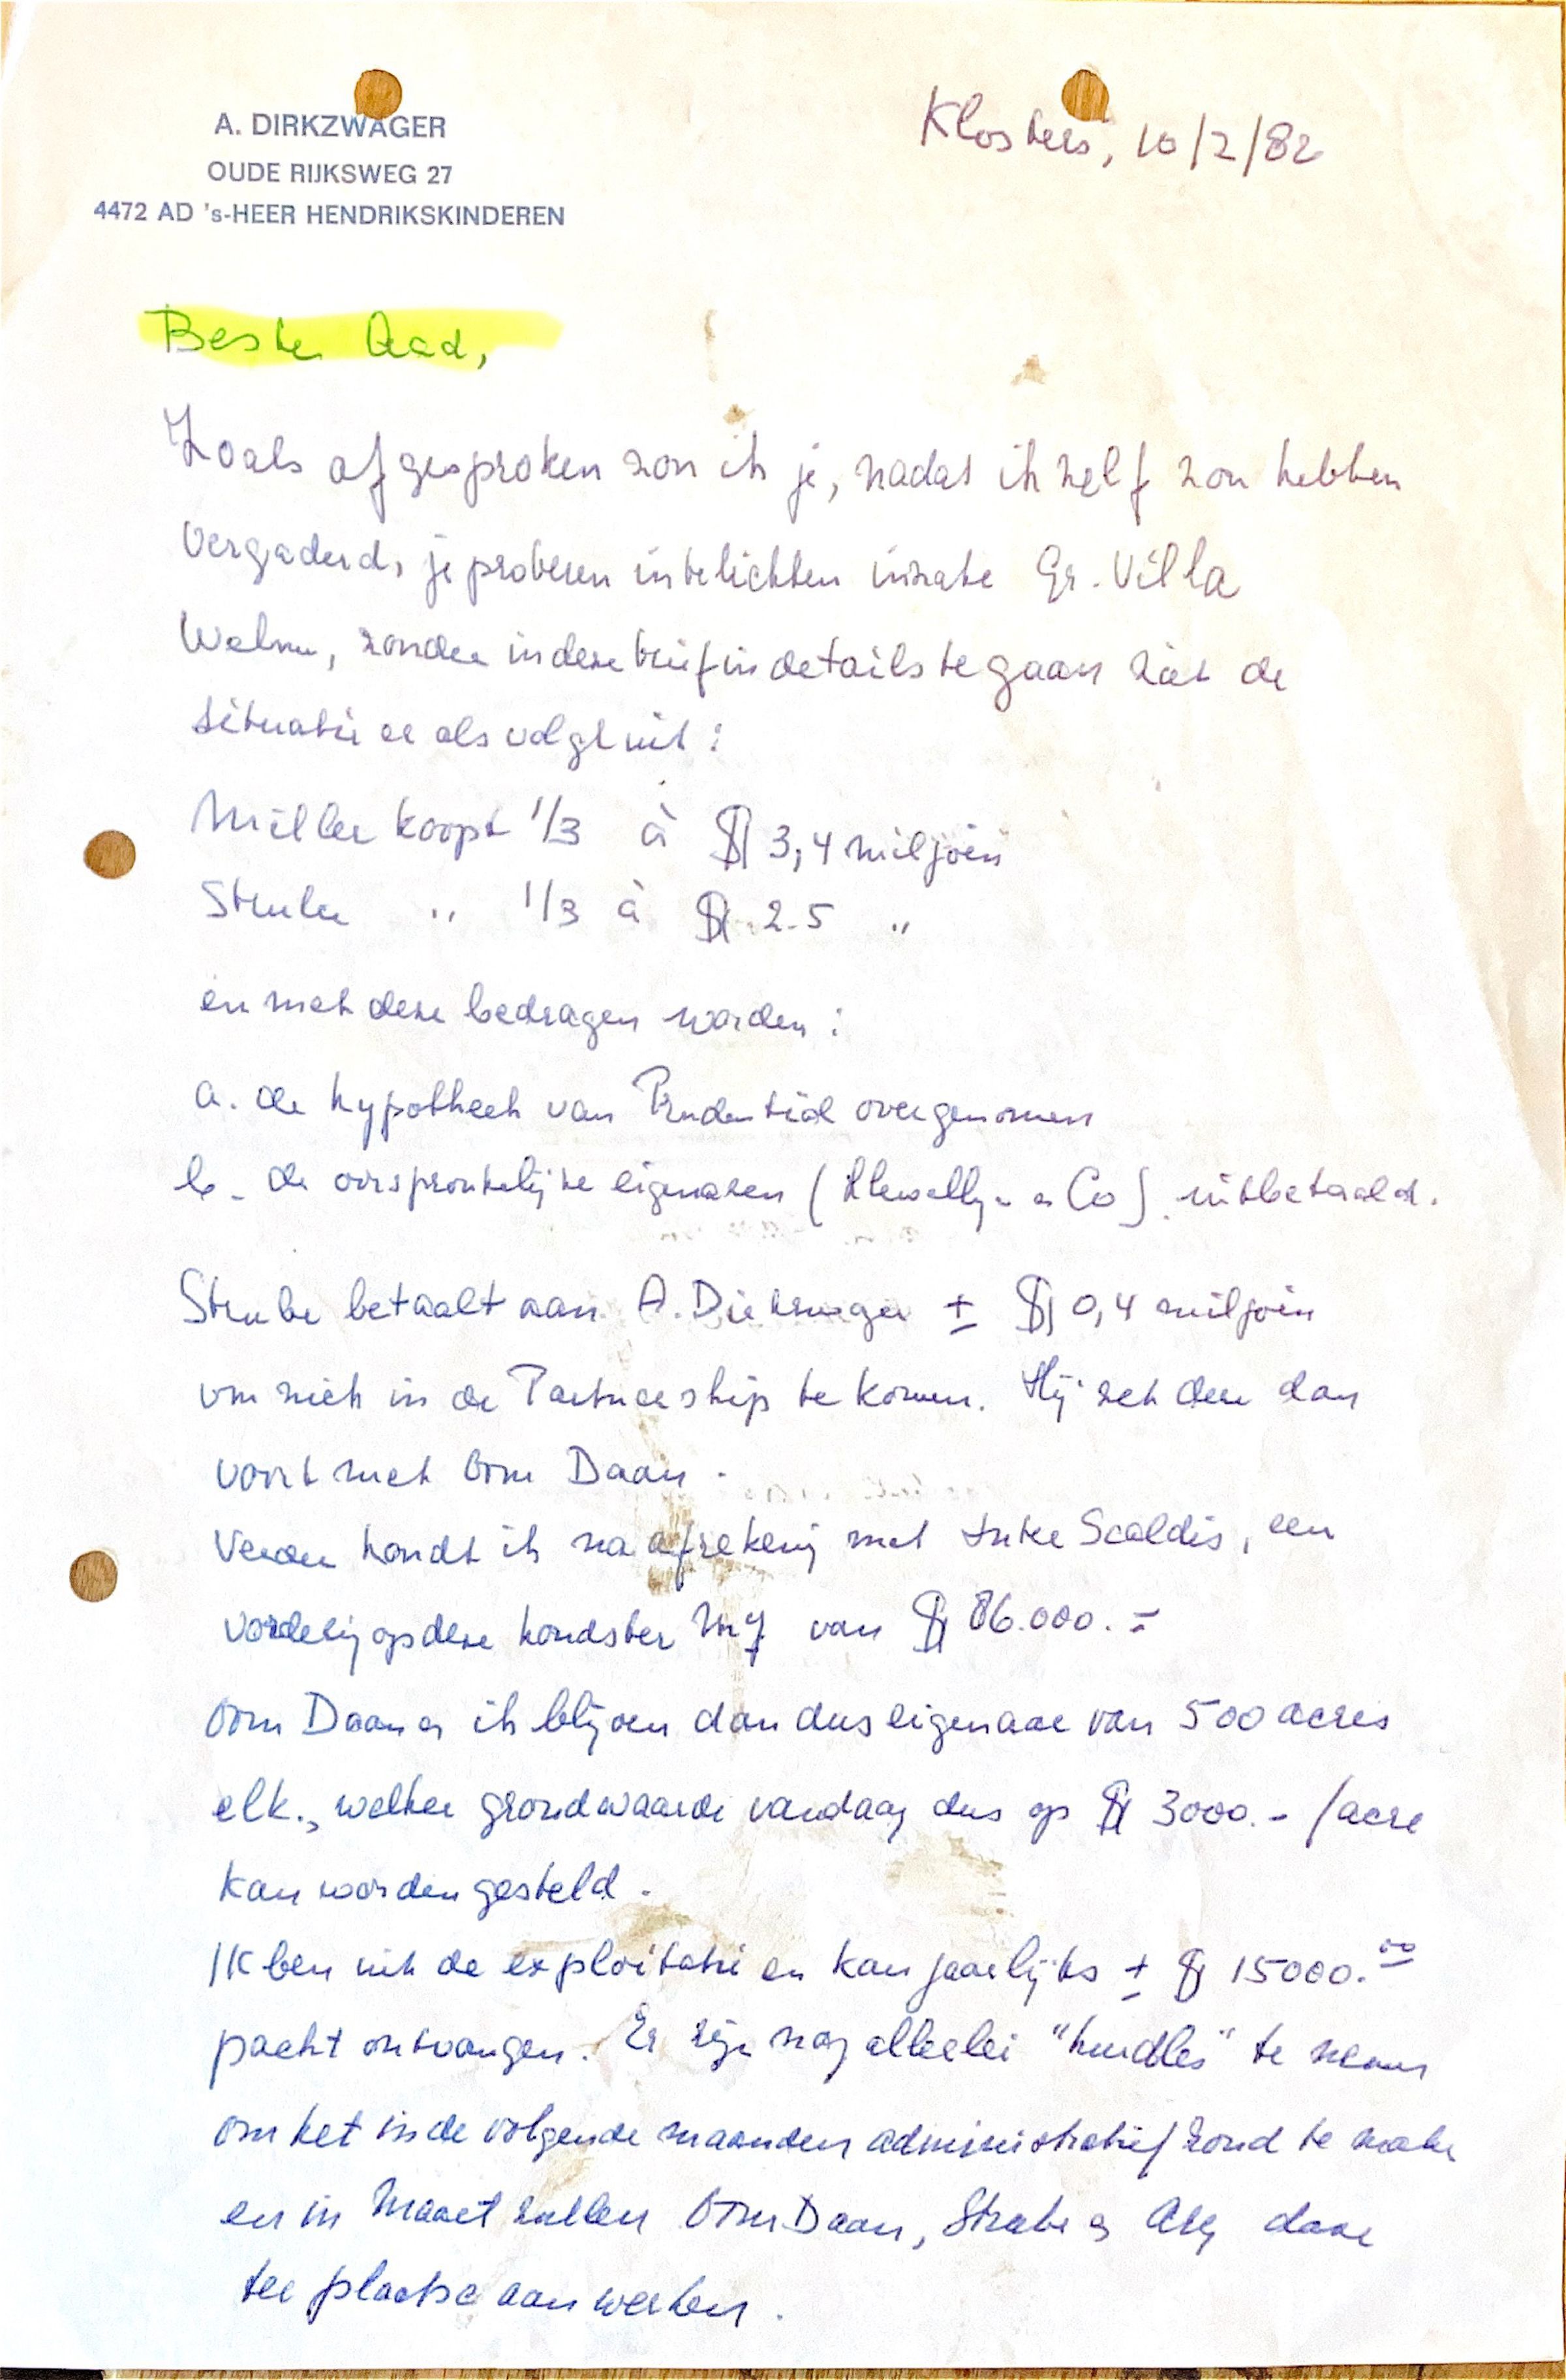 A. DIRKZWAGER
OUDE RIJKSWEG 27
4472 AD 's-HEER HENDRIKSKINDEREN
Klosters, 10/2/82
Beste Aad,
Zoals afgesproken zou ik je, nadat ik zelf zou hebben
vergaderd, je proberen in te lichten inzake Gr. Villa
Welnu, zonder in deze brief in details te gaan ziet de
situatie er als volgt uit:
Miller koopt 1/3 à $ 3,4 miljoen
Strube " 1/3 à $ 2.5 "
en met deze bedragen worden:
a. de hypotheek van Prudential overgenomen
b. de oorspronkelijke eigenaren (Llewellyn en Co) uitbetaald.
Strube betaalt aan A. Dirkzwager ± $ 0,4 miljoen
om zich in de Partnership te komen. Hij zet deze dan
voort met Oom Daan.
Verder houdt ik na afrekening met Inter Scaldis, een
vordering op deze houdster Mij van $ 86.000.=
Oom Daan en ik blijven dan dus eigenaar van 500 acres
elk., welker grondwaarde vandaag dus op $ 3000.- /acre
kan worden gesteld.
Ik ben uit de exploitatie en kan jaarlijks ± $ 15000.00
pacht ontvangen. Er zijn nog allerlei "hurdles" te nemen
om het in de volgende maanden administratief rond te maken
en in Maart zullen Oom Daan, Strube en daar
ter plaatse aan werken.